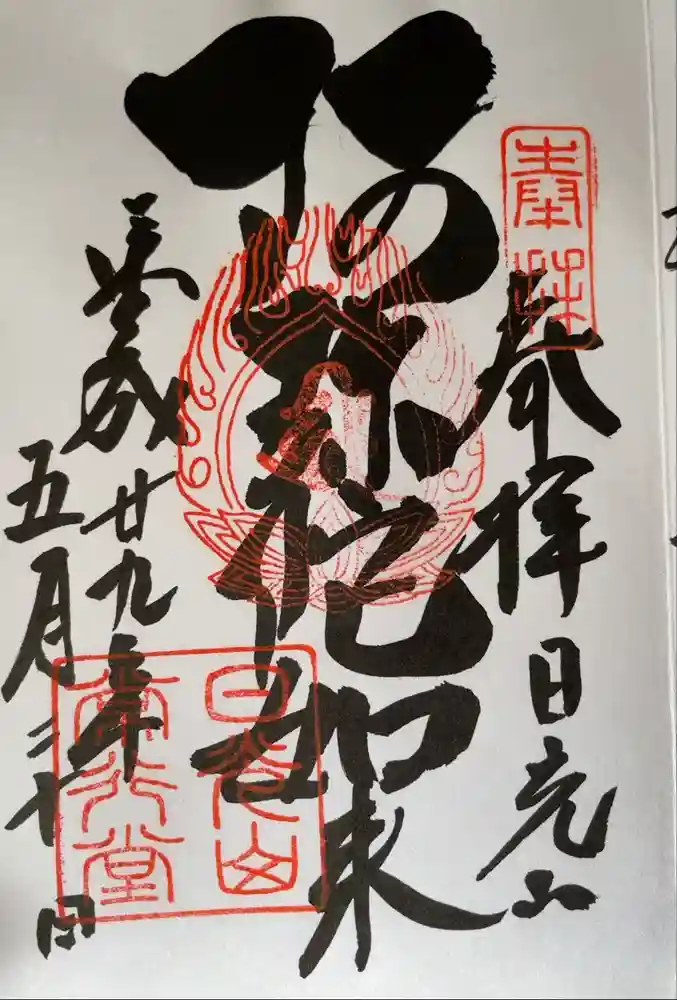 奉拝
奉拝 日光山
阿弥陀如来
平成廿九年
五月三十日
日光山
常行堂